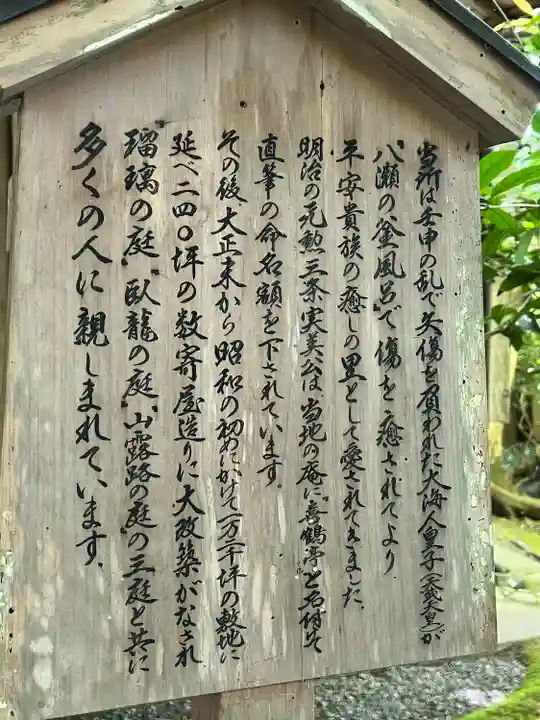 当所は壬申の乱で矢傷を負われた大海人皇子(天武天皇)が
“八瀬の釜風呂”で傷を癒されてより
平安貴族の癒しの里として愛されてきました。
明治の元勲三条実美公は当地の庵に“喜鶴亭”と名付け
直筆の命名額を下されています。
その後大正末から昭和の初めにかけて一万二千坪の敷地に
延べ二四〇坪の数寄屋造りに大改築がなされ
“瑠璃の庭”“臥龍の庭”“山露路の庭”の三庭と共に
多くの人に親しまれています。